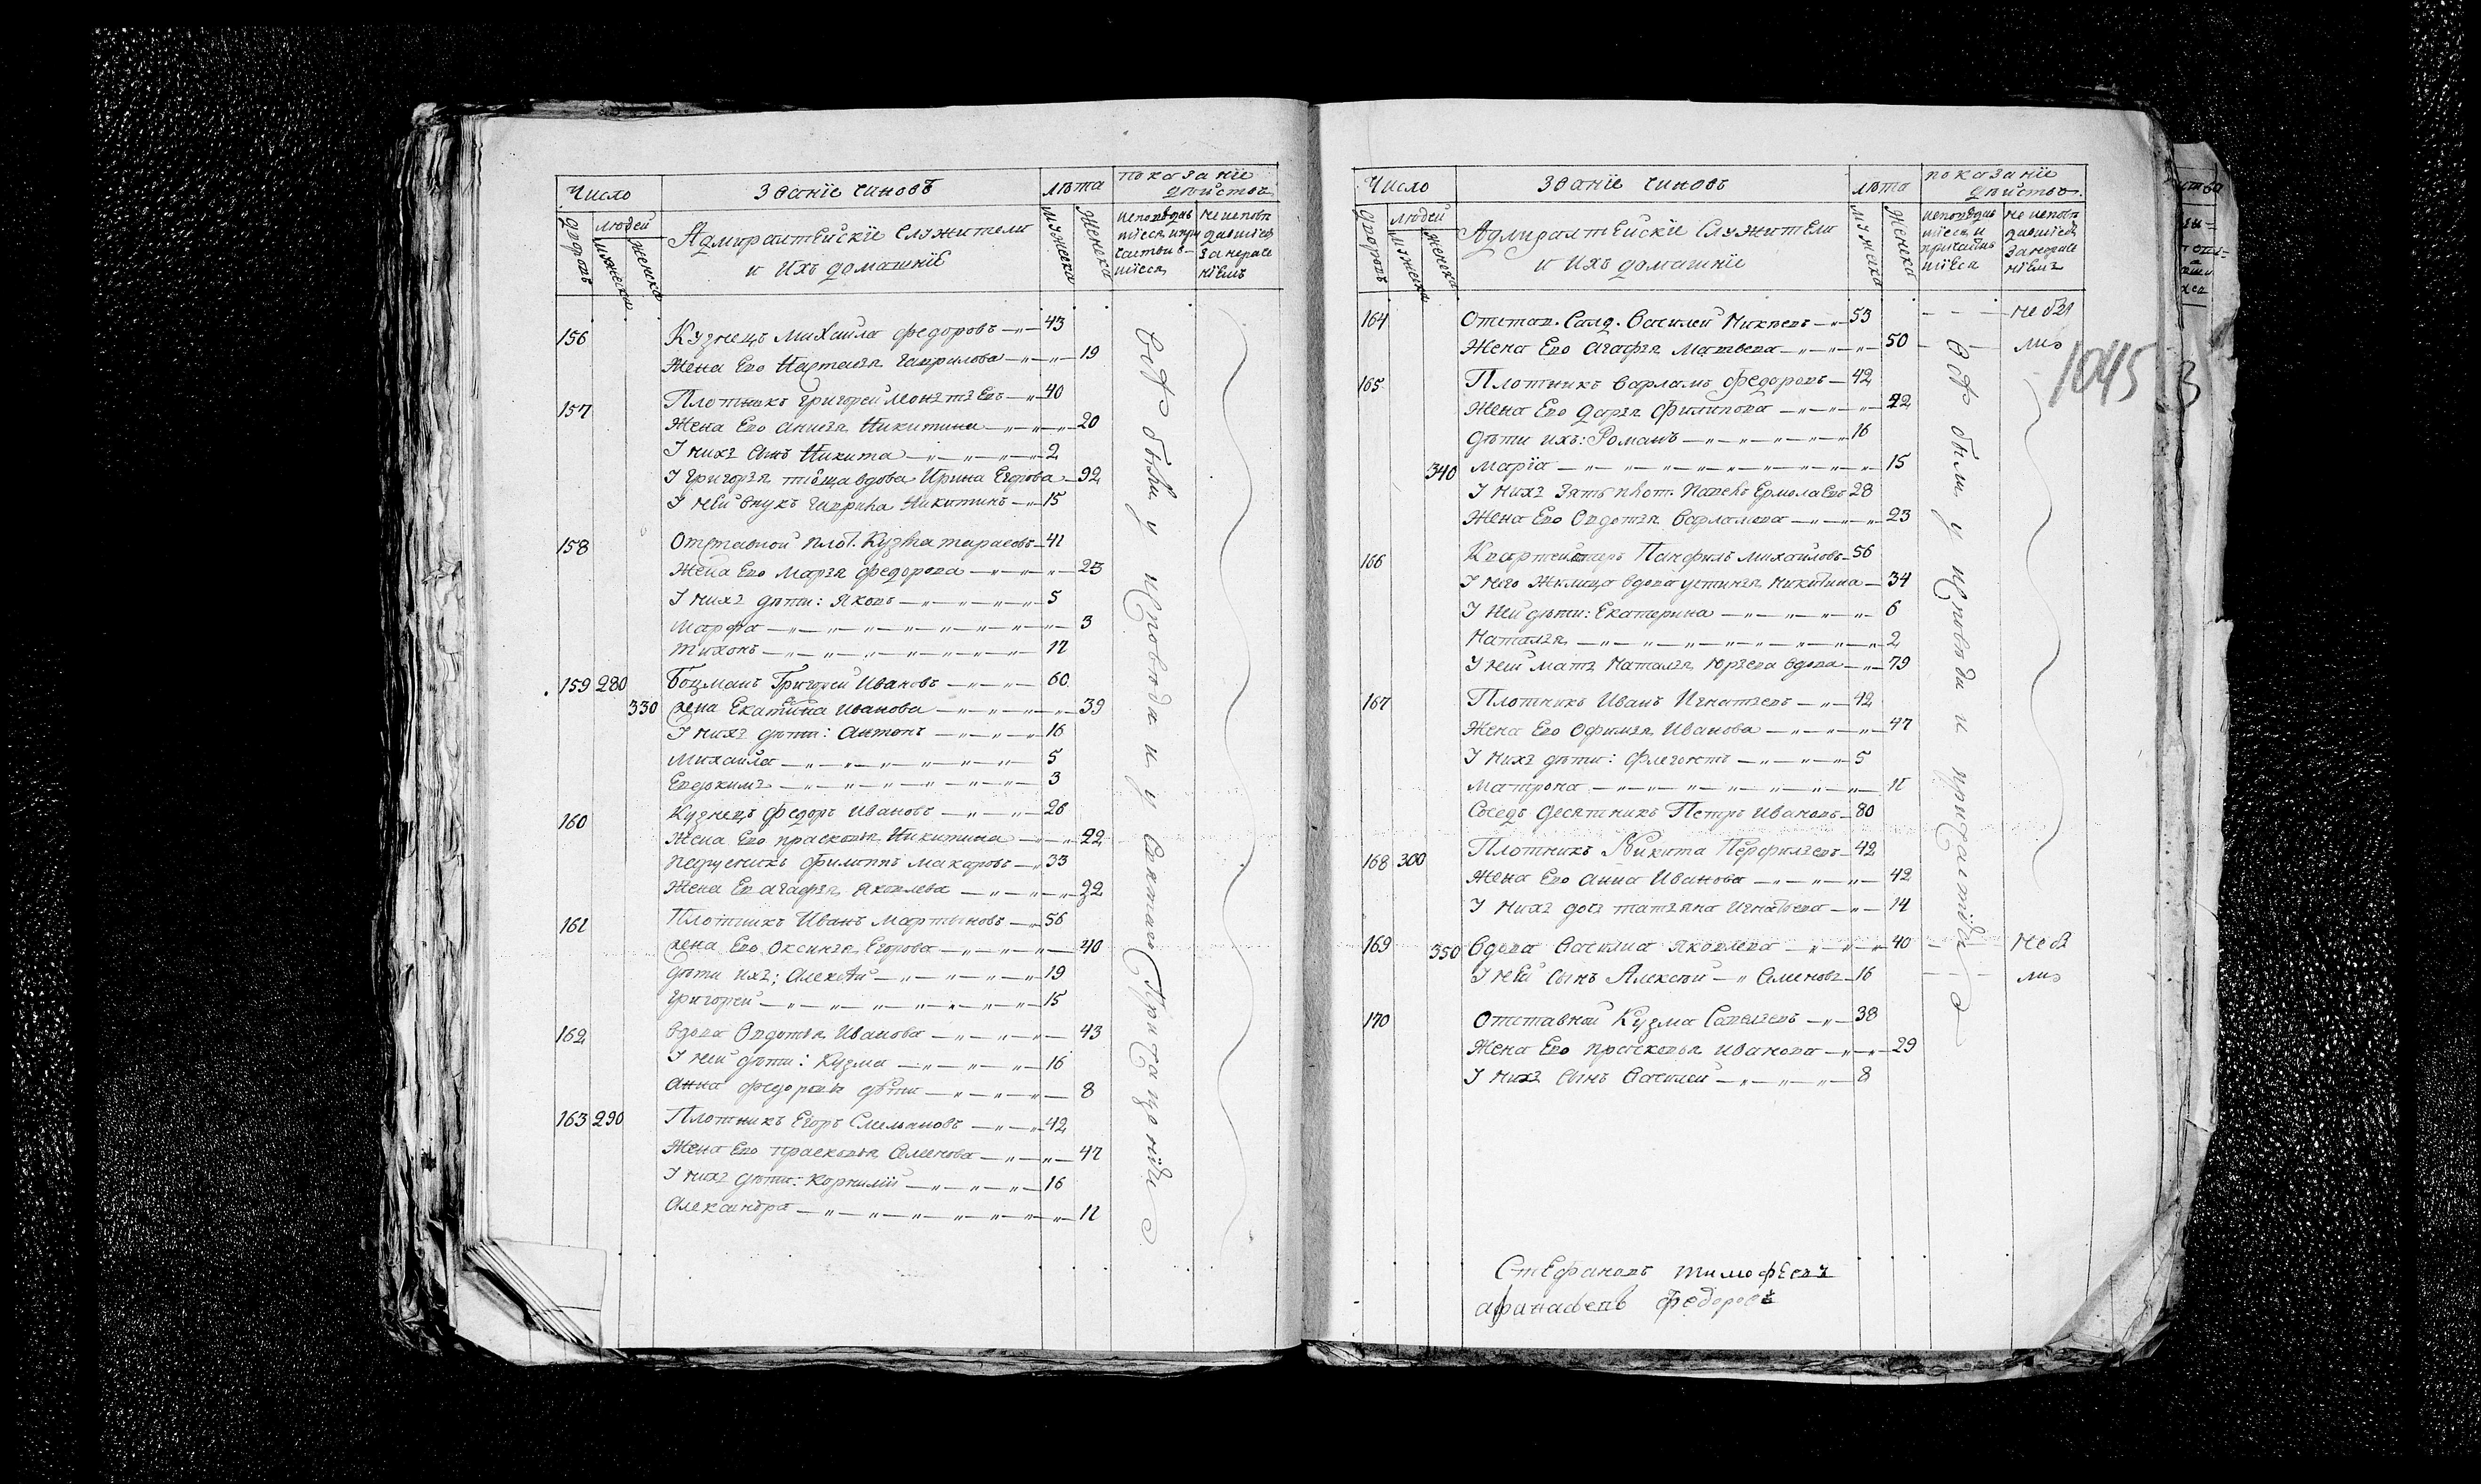 Число
Званїе чиновъ
Лѣта
показанїе
дѣйства
дворовъ
людей
мужеска
женска
Адмиралтейскїе служители
и Ихъ домашнїе
мужеска
женска
исповѣдав
шїеся и при
частив
шїеся
не исповѣ
давшїеся
за нераде
нїемъ
156 Кузнецъ михаила федоровъ 43
Жена Ево Наталья Гаврилова 19
157 Плотникъ григорей 40
Жена Ево анисья Никитина 20
У нихъ сынъ Никита 2
У Григорья тюща вдова Ирина Егорова 92
У неи внукъ гаврила Никитинъ 15
158 Отставной плот. Кузма тарасовъ 41
Жена Ево марья федорова 23
У нихъ дѣти: яковъ 5
марфа 3
тихонъ 12
159 280 Боцманъ Григорей Ивановъ 60
330 жена Екатерина иванова 39
У нихъ дѣти: антонъ 16
михаила 5
Евдокимъ 3
160 Кузнецъ федоръ Ивановъ 26
Жена Ево прасковья Никитина 22
парусникъ филиппъ макаровъ 33
Жена Ев агафья яковлева 22
161 Плотникъ Иванъ мартыновъ 56
жена Ево Оксинья Егорова 40
дѣти ихъ: алексѣй 19
григорей 15
162 вдова Овдотья Иванова 43
У неи дѣти: Кузма 16
анна федоровы дѣти 8
163 290 Плотникъ Егоръ Смельановъ 42
Жена Ево прасковья Семенова 47
У нихъ дѣти: корнилїй 16
александра 12
всѣ были у исповѣди и у святаго причащенїя
Число
Званїе чиновъ
лѣто
показанїе
дѣйства
дворовъ
людей
мужеска
женска
Адмиралтейскїе служители
и Ихъ домашнїе
мужска
женска
исповѣдав
шїеся и
причастив
шїеся
не исповѣ
давшїеся
за нераде
нїемъ
164 Отстав. Салд. Василей Микѣевъ 53 не бы
Жена Ево агафья матвева 50 ли
1045
165 Плотникъ варламъ федоровъ 42
Жена Ево дарья филипова 42
дѣти ихъ: Романъ 16
340 марїа 15
У нихъ зять плот. Павелъ Ермолаевъ 28
Жена Ево Овдотья варламова 23
166 Квартеймаръ Панфилъ михайловъ 56
У него Жилица вдова устинья никитина 34
У Неи дѣти: Екатерина 6
Наталья 2
У неи мать Наталья Юрьева вдова 79
167 Плотникъ Иванъ Игнатьевъ 42
Жена Ево Офимья Иванова 47
У нихъ дѣти: флегонтъ 5
матрона 11
Соседъ десятникъ Петръ Ивановъ 80
168 300 Плотникъ Никита Перфильевъ 42
Жена Ево анна Иванова 42
У нихъ дочь татьяна 14
169 350 вдова Василиа яковлева 40 не бы
У неи сынъ Алексѣй Семеновъ 16 ли
170 Отставной Кузма Савельевъ 38
Жена Ево прасковья иванова 29
У нихъ сынъ Василей 8
всѣ были у исповѣди и причастия
Стефановъ тимофѣевъ
афанасевъ федоровъ